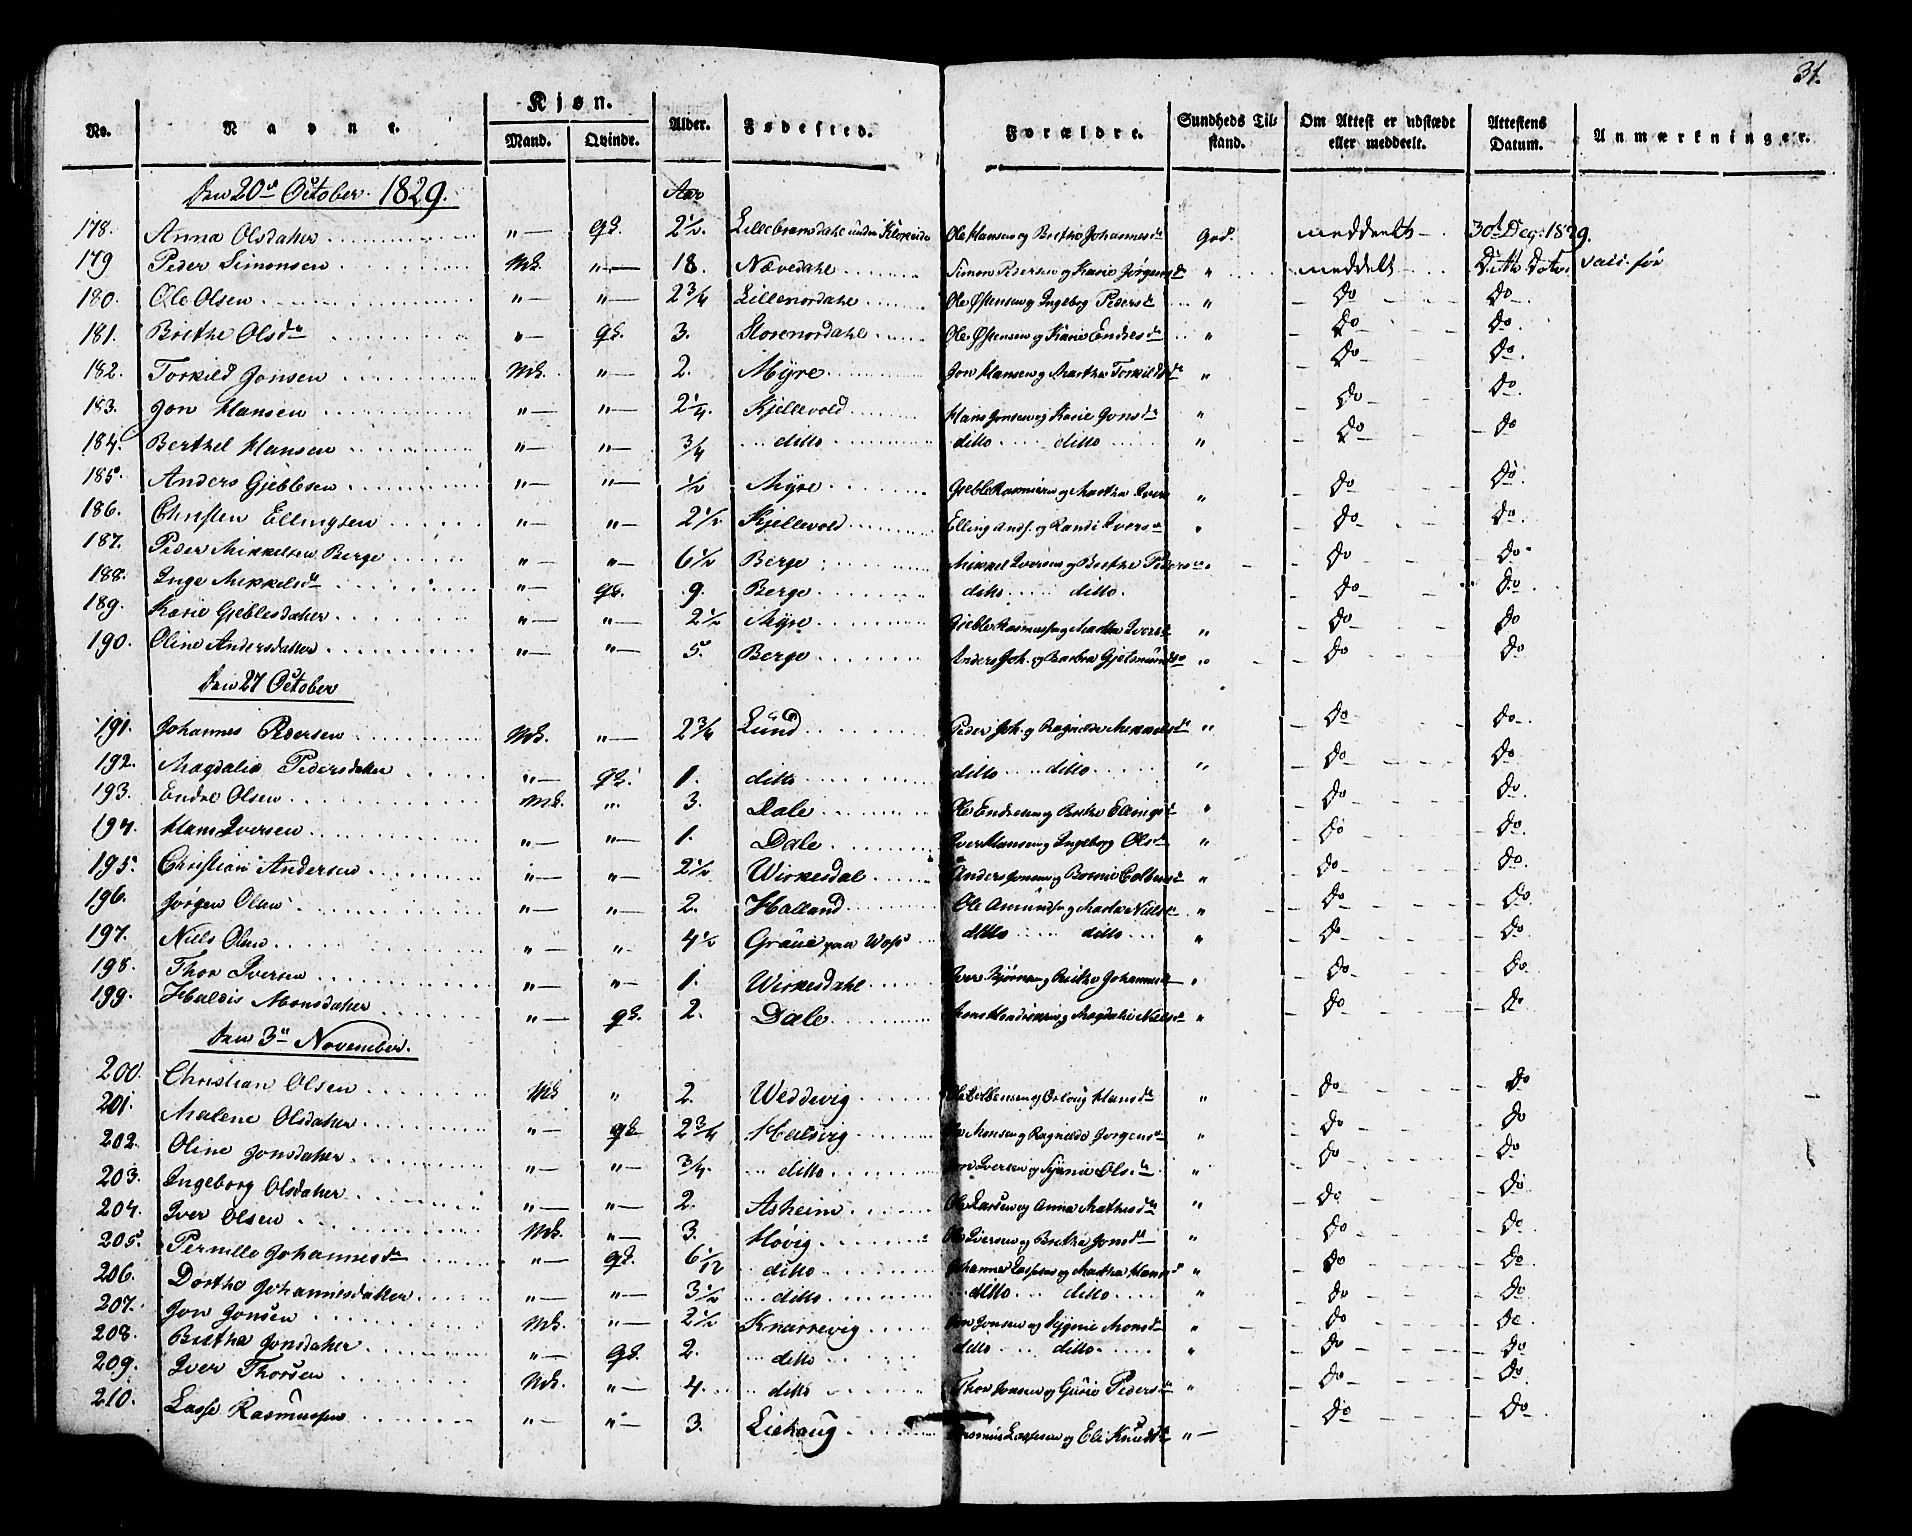 31.
No. Navne. Kjøn. Mand. Qvinde. Alder. Fødested. Forældre. Sundheds Tilstand. Om Attest er udstædt eller meddeelt. Attestens Datum. Anmærkninger.
Den 20de October 1829. Aar
178. Anna Olsdatter " — qk. 2½ Ole Hansen og Brithe Johannesd. God. meddeelt 30d Dec: 1829.
179 Peder Simonsen Mk. " — 18. Nævedahl Simon Pedersen og Karie Jørgensd. " meddelt Ditto Dato
180. Ole Olsen " — " — 2¾ Lillenordahl Ole Østensen og Ingeborg Pedersd. " Do Do
181. Brithe Olsd. " — qk. 3. Storenordahl Ole Østensen og Karie Endresd. " Do Do
182. Torkild Jonsen Mk. " — 2. Myre Jon Hansen og Martha Torkildsd. " Do Do
183. Jon Hansen " — " — 2¼. Kjellevold Hans Jonsen og Karie Jonsd. " Do Do
184. Berthel Hansen " — " — ¾ ditto ditto ditto " Do Do
185. Anders Gjeblesen " — " — ½ Myre Gjeble Rasmusen og Martha Ivers " Do Do
186. Christen Ellingsen " — " — 2½ Kjellevold Elling Ands. og Randi Ivers " Do Do
187. Peder Mikkelsen Berge " — " — 6½ Berge Mikkel Iversen og Brithe Peders " Do Do
188. Inge Mikkelsd. " — qk. 9. Berge ditto ditto. Do Do
189. Karie Gjeblesdatter " — " — 2½ Myre Gjeble Rasmussen og Martha Iversd. " Do Do
190. Oline Andersdatter " — " — 5. Berge Anders Joh. og Barbra Gjetmunds " Do Do
Den 27 October
191. Johannes Pedersen Mk. " — 2¾ Lund Peder Joh. og Ragnilde Mikkelsd. " Do Do
192. Magdalie Pedersdatter " — qk. 1. ditto ditto ditto " Do Do
193. Endre Olsen Mk. " 3. Dale Ole Endresen og Brithe Ellingsd. " Do Do
194. Hans Iversen " — " — 1. Dale Iver Hansen og Ingeborg Olsd. " Do Do
195. Christian Andersen " — " — 2½ Wirkesdal Anders Jonsen og " Do Do
196. Jørgen Olsen " — " — 2. Halland Ole Amundsen og Marta Nielsd. " Do Do
197. Niels Olsen " — " 4½ Graue paa Woss ditto ditto " Do Do
198. Thor Iversen " — " — 1. Wirkesdahl Iver og Brithe Johannesd. " Do Do
199. Huldis Monsdatter " — qk. 2. Dale Mons og Magdalie Nielsd. " Do Do
Den 3de November.
200. Christian Olsen Mk " 2. Weddevig og Hansd. " Do Do
201. Malene Olsdatter " — qk 2¾ Helsvig Monsen og Ragnilde Jorgensd. " Do Do
202. Oline Jonsdatter " — " — ¾. ditto Jon Iversen og Olsd. " Do Do
203. Ingeborg Olsdatter " — " — 2. Asheim Ole Larsen og Anna Mathisd. " Do Do
204. Iver Olsen Mk. " — 3. Høvig Ole Iversen og Brithe Jonsd. " Do Do
205. Pernille Johannesd. " — qk. 6/12 ditto Johannes Lassesen og Martha Hansd " Do Do
206. Dorthe Johannesdatter " — " — 3½ ditto ditto ditto " Do Do
207. Jon Jonsen Mk. " — 2½ Knarrevig Jon Jonsen og Monsd. " Do Do
208. Brithe Jonsdatter " — qk. 2. ditto ditto ditto " Do Do
209. Iver Thorsen Mk. " — 4. ditto Thor Jonsen og Gurie Pedersd. " Do Do
210. Lasse Rasmussen " — " — 3. Liehaug Rasmus Lassesen og Eli Knudsd. " — Do Do